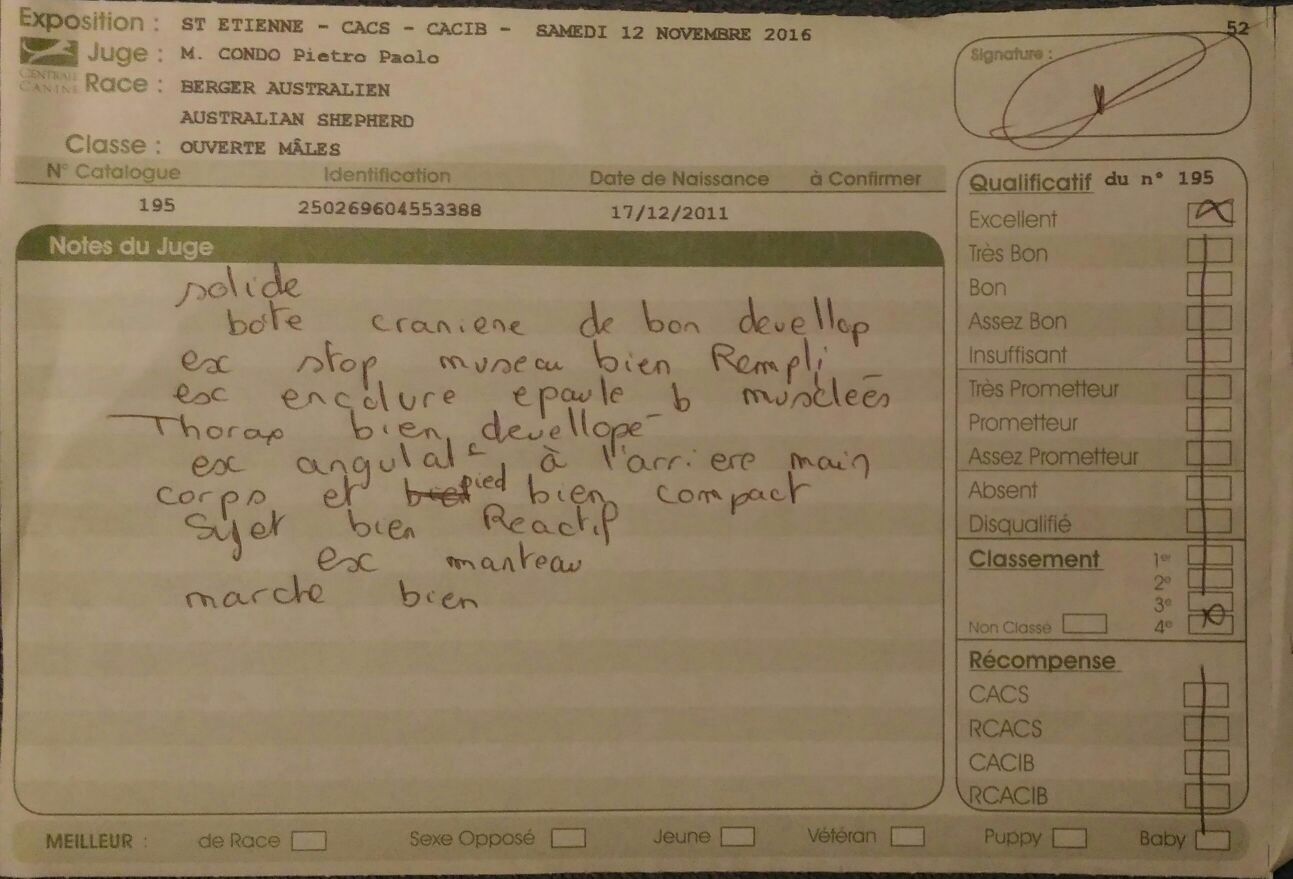 52
Exposition : ST ETIENNE - CACS - CACIB - SAMEDI 12 NOVEMBRE 2016
Juge : M. CONDO Pietro Paolo
CENTRALE CANINE
Race : BERGER AUSTRALIEN
AUSTRALIAN SHEPHERD
Classe : OUVERTE MÂLES
Signature :
N° Catalogue Identification Date de Naissance à Confirmer
195 250269604553388 17/12/2011
Notes du Juge
solide
bote craniene de bon devellop
exc stop museau bien Rempli
exc encolure epaule b musclées
Thorax bien devellopé
exc angulat° à l'arriere main
corps et pied bien compact
Sujet bien Reactif
exc manteau
marche bien
Qualificatif du n° 195
Excellent
Très Bon
Bon
Assez Bon
Insuffisant
Très Prometteur
Prometteur
Assez Prometteur
Absent
Disqualifié
Classement 1er
2e
3e
Non Classé 4e
Récompense
CACS
RCACS
CACIB
RCACIB
MEILLEUR : de Race Sexe Opposé Jeune Vétéran Puppy Baby